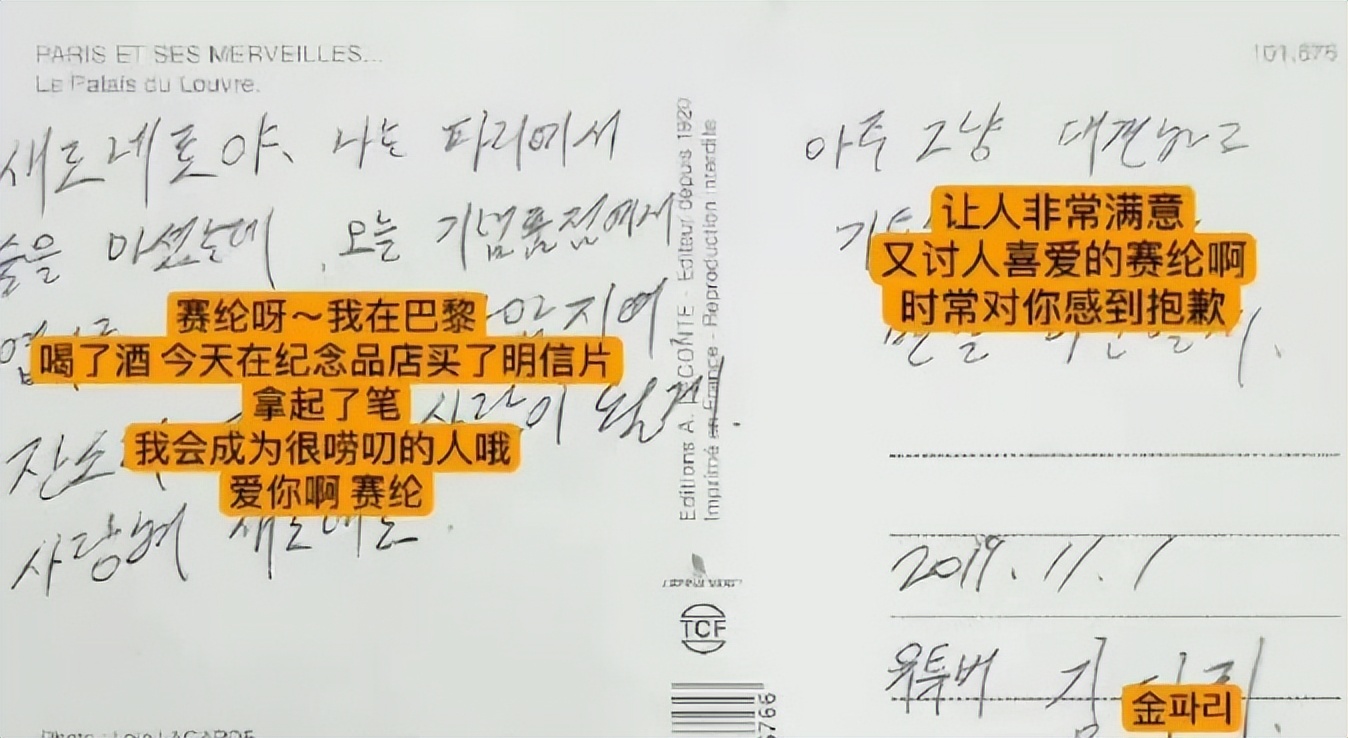 PARIS ET SES MERVEILLES...
Le Palais du Louvre.
새로레토야, 나는 파리에서
술을 마셨는데, 오늘 기념품점에서
赛纶呀~我在巴黎
喝了酒 今天在纪念品店买了明信片
拿起了笔
我会成为很唠叨的人哦
爱你啊 赛纶
잔소 사람이 될게.
사랑해 새로레토.
Editions A. LECONTE - Editeur depuis 1920
Imprimé en France - Reproduction interdite
TCF
5766
101.675
아주 그냥 대견하고
让人非常满意
又讨人喜爱的赛纶啊
时常对你感到抱歉
2019.11.1
유튜버 김 리
金파리